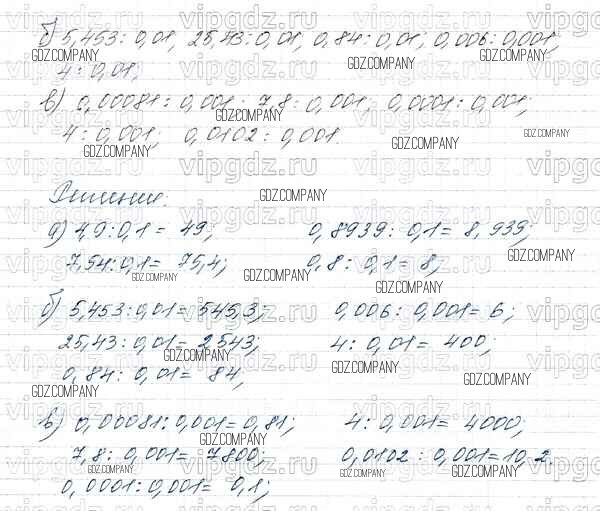 б) 5,453 : 0,01; 25,43 : 0,01; 0,84 : 0,01; 0,006 : 0,001;
4 : 0,01;
в) 0,00081 : 0,001; 7,8 : 0,001; 0,0001 : 0,001;
4 : 0,001; 0,0102 : 0,001.
Решение:
а) 4,9 : 0,1 = 49; 0,8939 : 0,1 = 8,939;
7,54 : 0,1 = 75,4; 0,8 : 0,1 = 8;
б) 5,453 : 0,01 = 545,3; 0,006 : 0,001 = 6;
25,43 : 0,01 = 2543; 4 : 0,01 = 400;
0,84 : 0,01 = 84,
в) 0,00081 : 0,001 = 0,81; 4 : 0,001 = 4000;
7,8 : 0,001 = 7800; 0,0102 : 0,001 = 10,2.
0,0001 : 0,001 = 0,1;
vipgdz.ru
GDZ.COMPANY